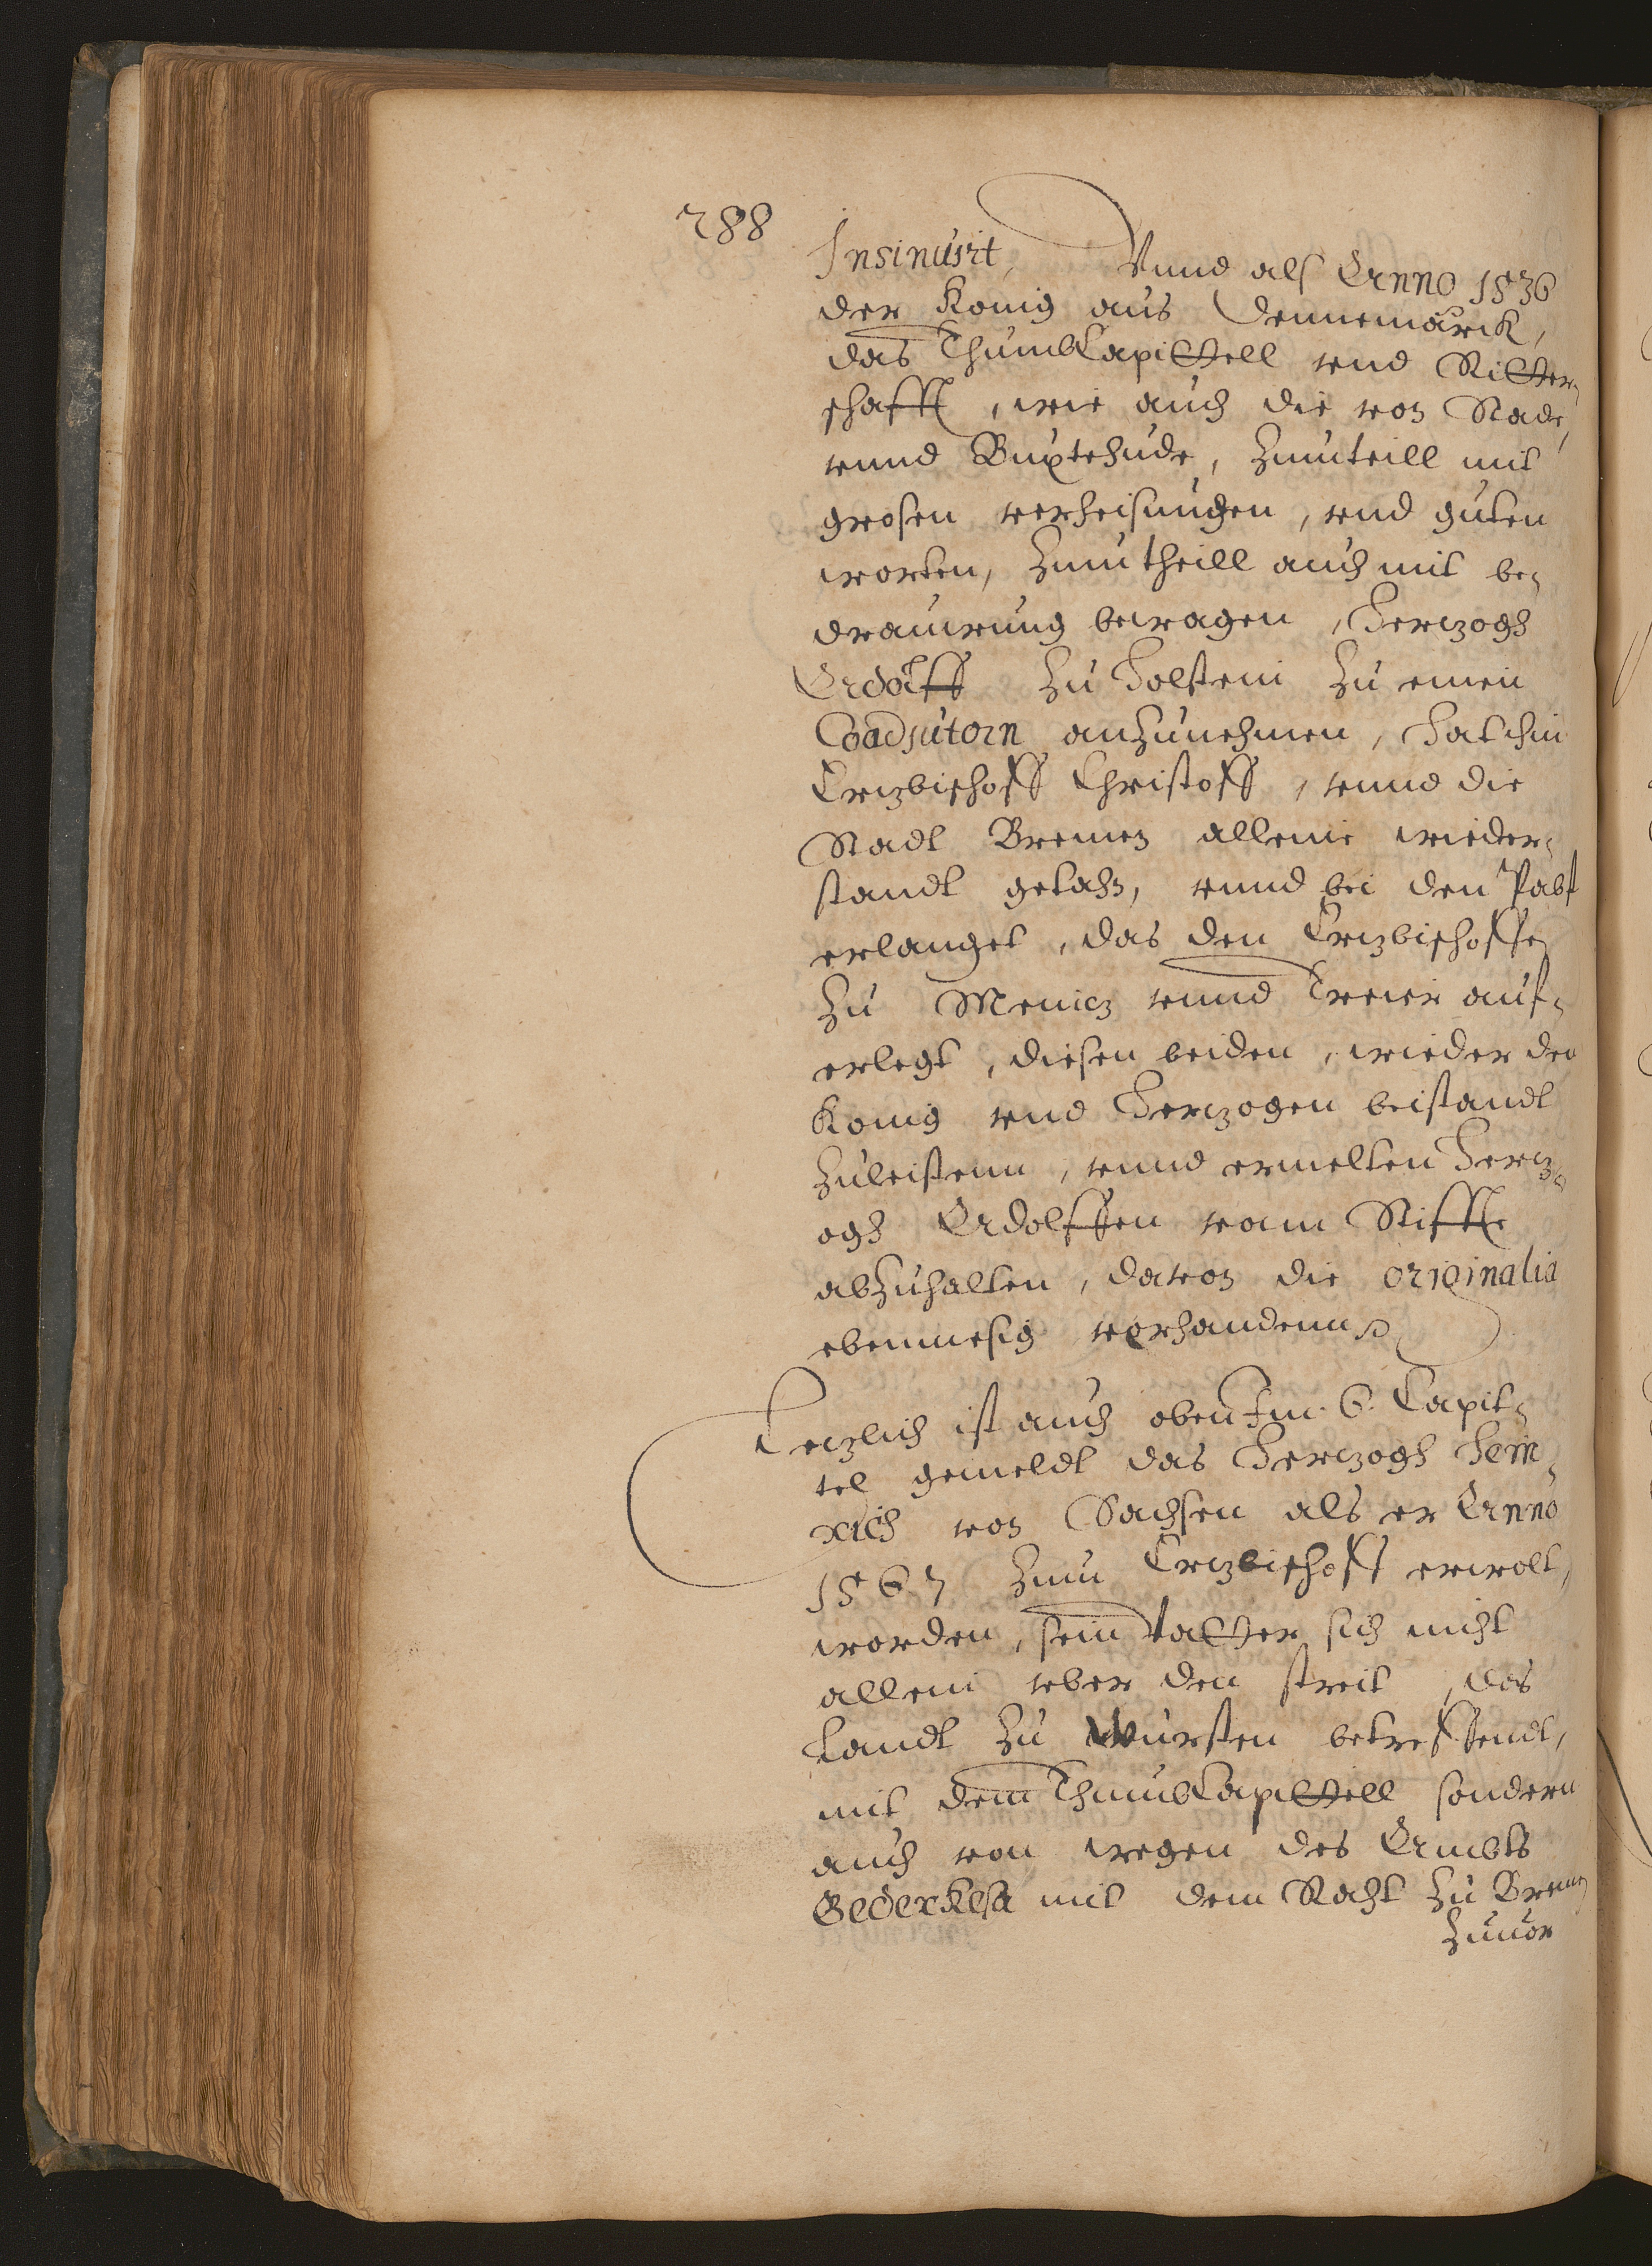 288
Insinuirt, Vnnd als Anno 1536
der Konig aus Dennemarck,
das ThumbCapittell vnd Ritter-
schafft, wie auch die von Stade,
vnnd Buxtehude, Zumteill mit
grosen verheisungen, vnd guten
worten, Zumtheill auch mit be-
drauwung bewagen, Herczogh
Adolff zu Holstein zu einen
Coadjutorn anzunehmen, hat ihm
Erczbischoff Christoff, vnnd die
Stadt Bremen alleine wieder-
standt getahn, vnnd bei den Pabst
erlanget, das den Erczbischoffen
zu Meincz vnnd Treier auf-
erlegt, diesen beiden, wieder den
Konig vnd Herczogen beistandt
zuleistenn, vnnd ermelten Hercz-
ogh Adolffen vam Stiffte
abzuhalten, davon die originalia
ebenmesig vorhandenn
Leczlich ist auch oben Im 6. Capit-
tel gemeldt das Herczogh Hein-
rich von Sachsen als er Anno
1567 zum Erczbischoff erwolt,
worden, sein vatter sich nicht
allein vber den streit, das
Landt zu Wursten betreffendt,
mit dem ThumbCapittell sondern
auch von wegen des Ambts
Bederkesa mit dem Raht zu Bremen
zuuor